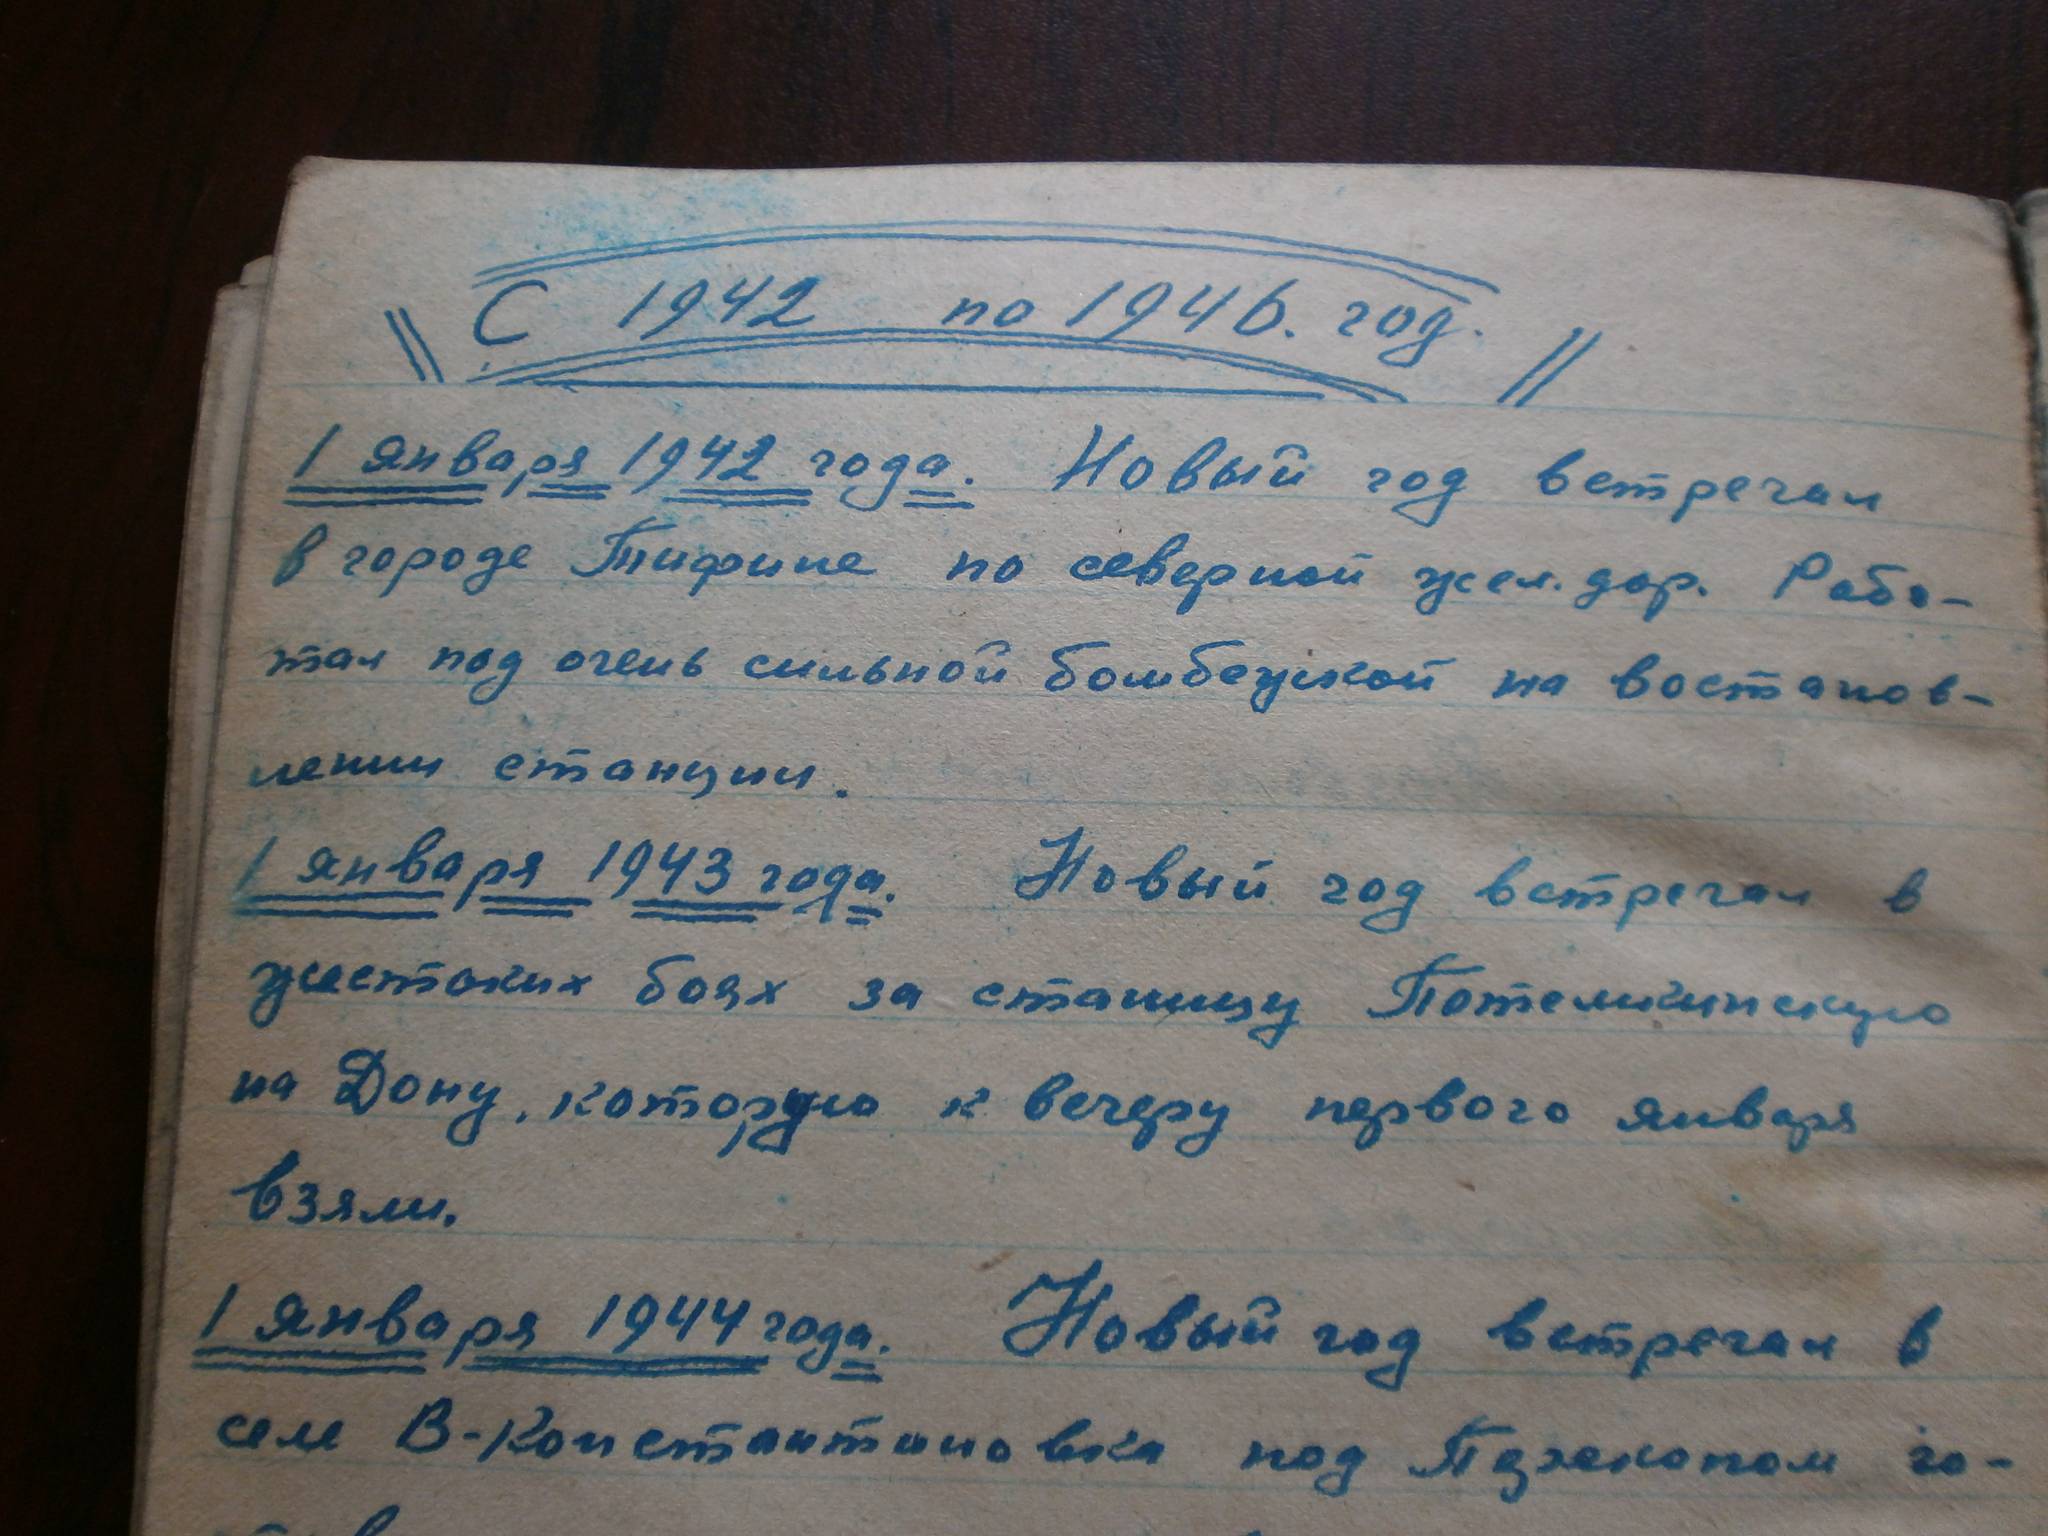 С 1942 по 1946. год.
1 января 1942 года. Новый год встречал
в городе Тифине по северной жел. дор. Рабо-
тал под очень сильной бомбежкой на востанов-
лении станции.
1 января 1943 года. Новый год встречал в
жестоких боях за станицу Потемкинскую
на Дону, которую к вечеру первого января
взяли.
1 января 1944 года. Новый год встречал в
селе В-Константиновка под го-